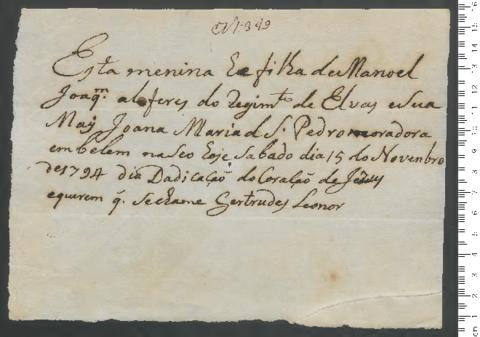 Esta menina he filha de Manoel
Joaq.m alferes do Regim.to de Elvas e sua
May Joana Maria de S. Pedro moradora
em belem nasceo hoje Sabado dia 15 do Novenbro
de 1794 dia Dadicação do Coração de Jesus
e querem q. se chame Gertrudes Leonor